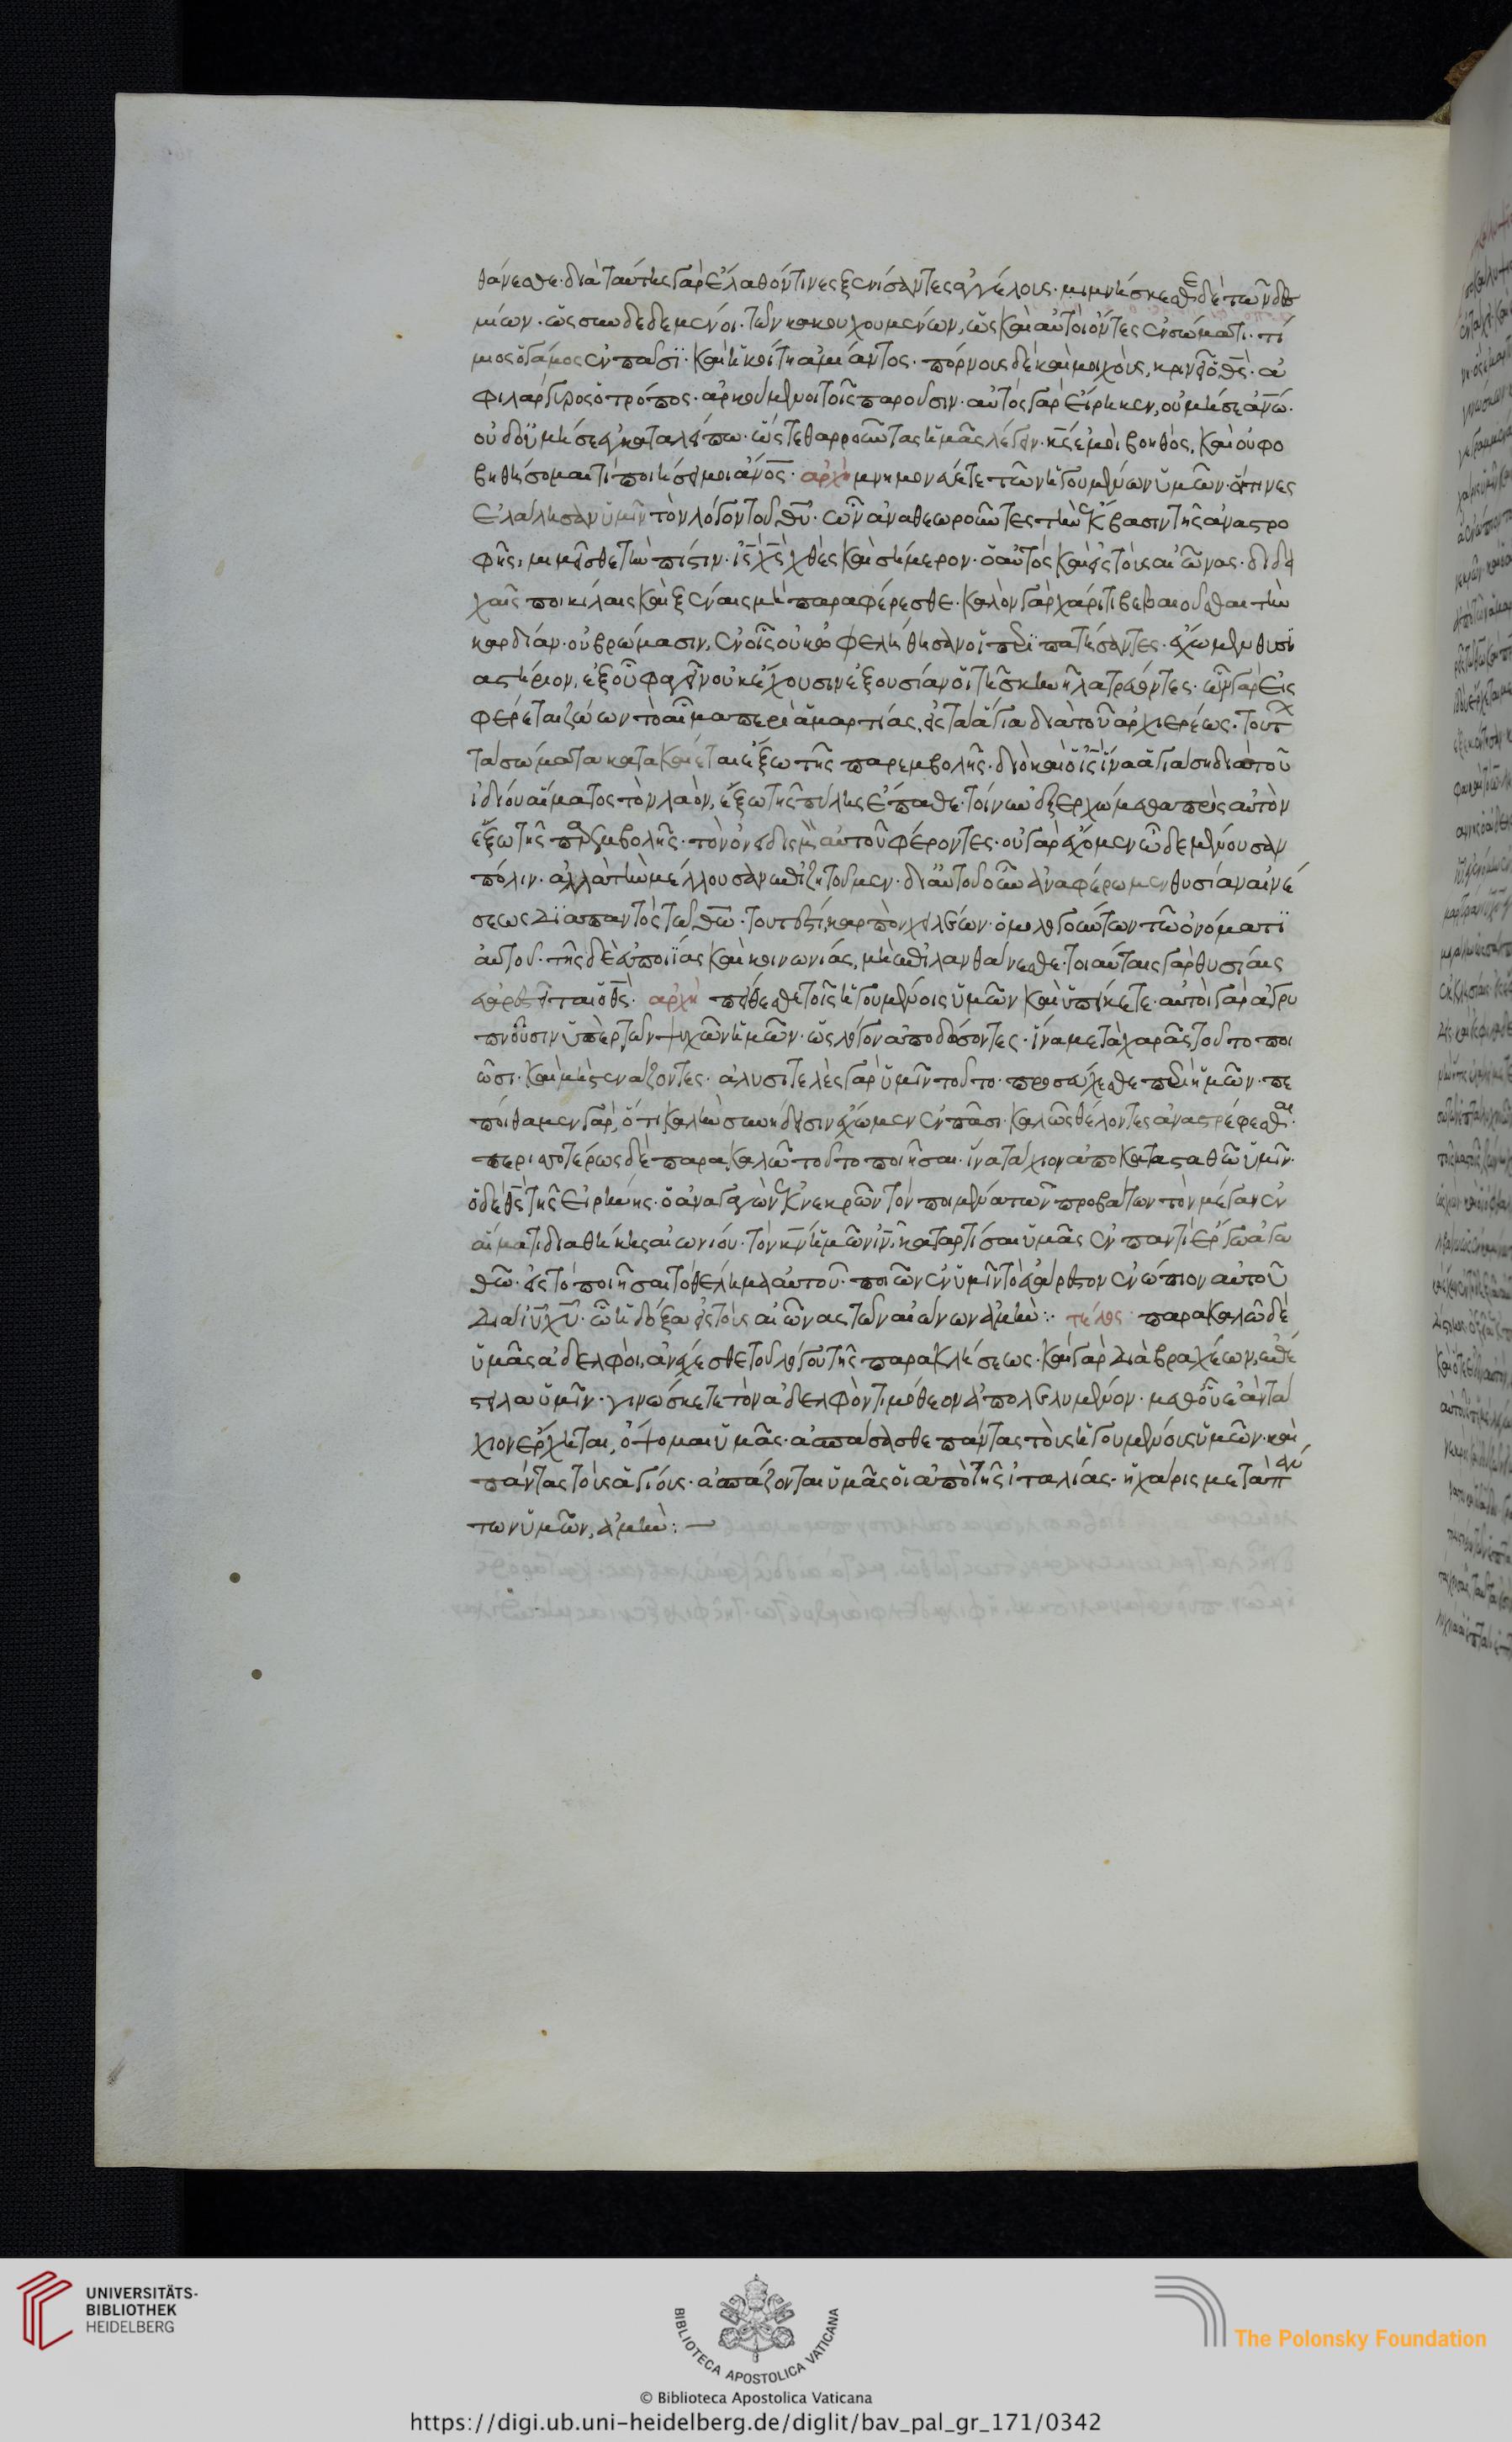 θάνεσθε· διὰ ταύτης γὰρ ἔλαθόν τινες ξενίσαντες ἀγγέλους· μιμνήσκεσθε δὲ τῶν δε
σμίων· ὡς συνδεδεμένοι· τῶν κακουχουμένων, ὡς καὶ αὐτοὶ ὄντες ἐν σώματι· τί
μιος ὁ γάμος ἐν πᾶσι· καὶ ἡ κοίτη ἀμίαντος· πόρνους δὲ καὶ μοιχοὺς, κρινεῖ ὁ θς· ἀ
φιλάργυρος ὁ τρόπος· ἀρκούμενοι τοῖς παροῦσιν· αὐτὸς γὰρ εἴρηκεν, οὐ μή σε ἀνῶ·
οὐδ' οὐ μή σε ἐγκαταλείπω· ὥστε θαρροῦντας ἡμᾶς λέγειν· κς ἐμοὶ βοηθὸς, καὶ οὐ φο
βηθήσομαι τί ποιήσει μοι ἄνος· ἀρχὴ μνημονεύετε τῶν ἡγουμένων ὑμῶν· οἵτινες
ἐλάλησαν ὑμῖν τὸν λόγον τοῦ θυ· ὧν ἀναθεωροῦντες τὴν ἔκβασιν τῆς ἀναστρο
φῆς, μιμεῖσθε τὴν πίστιν· ις χς χθὲς καὶ σήμερον· ὁ αὐτὸς καὶ εἰς τοὺς αἰῶνας· διδα
χαῖς ποικίλαις καὶ ξέναις μὴ παραφέρεσθε· καλὸν γὰρ χάριτι βεβαιοῦσθαι τὴν
καρδίαν· οὐ βρώμασιν, ἐν οἷς οὐκ ὠφελήθησαν οἱ περιπατήσαντες· ἔχωμεν θυσι
αστήριον, ἐξ οὗ φαγεῖν οὐκ ἔχουσιν ἐξουσίαν οἱ τῇ σκηνῇ λατρεύοντες· ὧν γὰρ εἰς
φέρεται ζώων τὸ αἷμα περὶ ἁμαρτίας, εἰς τὰ ἅγια διὰ τοῦ ἀρχιερέως· τούτ
τὰ σώματα κατακαίεται ἔξω τῆς παρεμβολῆς· διὸ καὶ ὁ ις ἵνα ἁγιάσῃ διὰ τοῦ
ἰδίου αἵματος τὸν λαὸν, ἔξω τῆς πύλης ἔπαθε· τοίνυν ἐξερχώμεθα πρὸς αὐτὸν
ἔξω τῆς παρεμβολῆς· τὸν ὀνειδισμὸν αὐτοῦ φέροντες· οὐ γὰρ ἔχομεν ὧδε μένουσαν
πόλιν· ἀλλὰ τὴν μέλλουσαν ἐπιζητοῦμεν· δι' αὐτοῦ οὖν ἀναφέρωμεν θυσίαν αἰνέ
σεως διαπαντὸς τῷ θω· τουτέστι, καρπὸν χειλέων· ὁμολογούντων τῷ ὀνόματι
αὐτοῦ· τῆς δὲ εὐποιΐας καὶ κοινωνίας, μὴ ἐπιλανθάνεσθε· τοιαύταις γὰρ θυσίαις
εὐαρεστεῖται ὁ θς· ἀρχὴ πείθεσθε τοῖς ἡγουμένοις ὑμῶν καὶ ὑπείκετε· αὐτοὶ γὰρ ἀγρυ
πνοῦσιν ὑπὲρ τῶν ψυχῶν ἡμῶν· ὡς λόγον ἀποδώσοντες· ἵνα μετὰ χαρᾶς τοῦτο ποι
ῶσι· καὶ μὴ στενάζοντες· ἀλυσιτελὲς γὰρ ὑμῖν τοῦτο· προσεύχεσθε περὶ ἡμῶν· πε
ποίθαμεν γὰρ, ὅτι καλὴν συνείδησιν ἔχωμεν ἐν πᾶσι· καλῶς θέλοντες ἀναστρέφεσθαι·
περισσοτέρως δὲ παρακαλῶ τοῦτο ποιῆσαι· ἵνα τάχιον ἀποκατασταθῶ ὑμῖν·
ὁ δὲ θς τῆς εἰρήνης· ὁ ἀναγαγὼν ἐκ νεκρῶν τὸν ποιμένα τῶν προβάτων τὸν μέγαν ἐν
αἵματι διαθήκης αἰωνίου· τὸν κν ἡμῶν ιν, καταρτίσαι ὑμᾶς ἐν παντὶ ἔργῳ ἀγα
θῶ· εἰς τὸ ποιῆσαι τὸ θέλημα αὐτοῦ· ποιῶν ἐν ὑμῖν τὸ εὐάρεστον ἐνώπιον αὐτοῦ
διὰ ιυ χυ· ᾧ ἡ δόξα εἰς τοὺς αἰῶνας τῶν αἰώνων ἀμήν:· τέλος· παρακαλῶ δὲ
ὑμᾶς ἀδελφοὶ, ἀνέχεσθε τοῦ λόγου τῆς παρακλήσεως· καὶ γὰρ διὰ βραχέων, ἐπέ
στειλα ὑμῖν· γινώσκετε τὸν ἀδελφὸν τιμόθεον ἀπολελυμένον· μεθ' οὗ ἐὰν τά
χιον ἔρχηται, ὄψομαι ὑμᾶς· ἀσπάσασθε πάντας τοὺς ἡγουμένους ὑμῶν· καὶ
πάντας τοὺς ἁγίους· ἀσπάζονται ὑμᾶς οἱ ἀπὸ τῆς ἰταλίας· ἡ χάρις μετὰ πάν
των ὑμῶν, ἀμήν:—
UNIVERSITÄTS-
BIBLIOTHEK
HEIDELBERG
BIBLIOTECA APOSTOLICA VATICANA
The Polonsky Foundation
© Biblioteca Apostolica Vaticana
https://digi.ub.uni-heidelberg.de/diglit/bav_pal_gr_171/0342